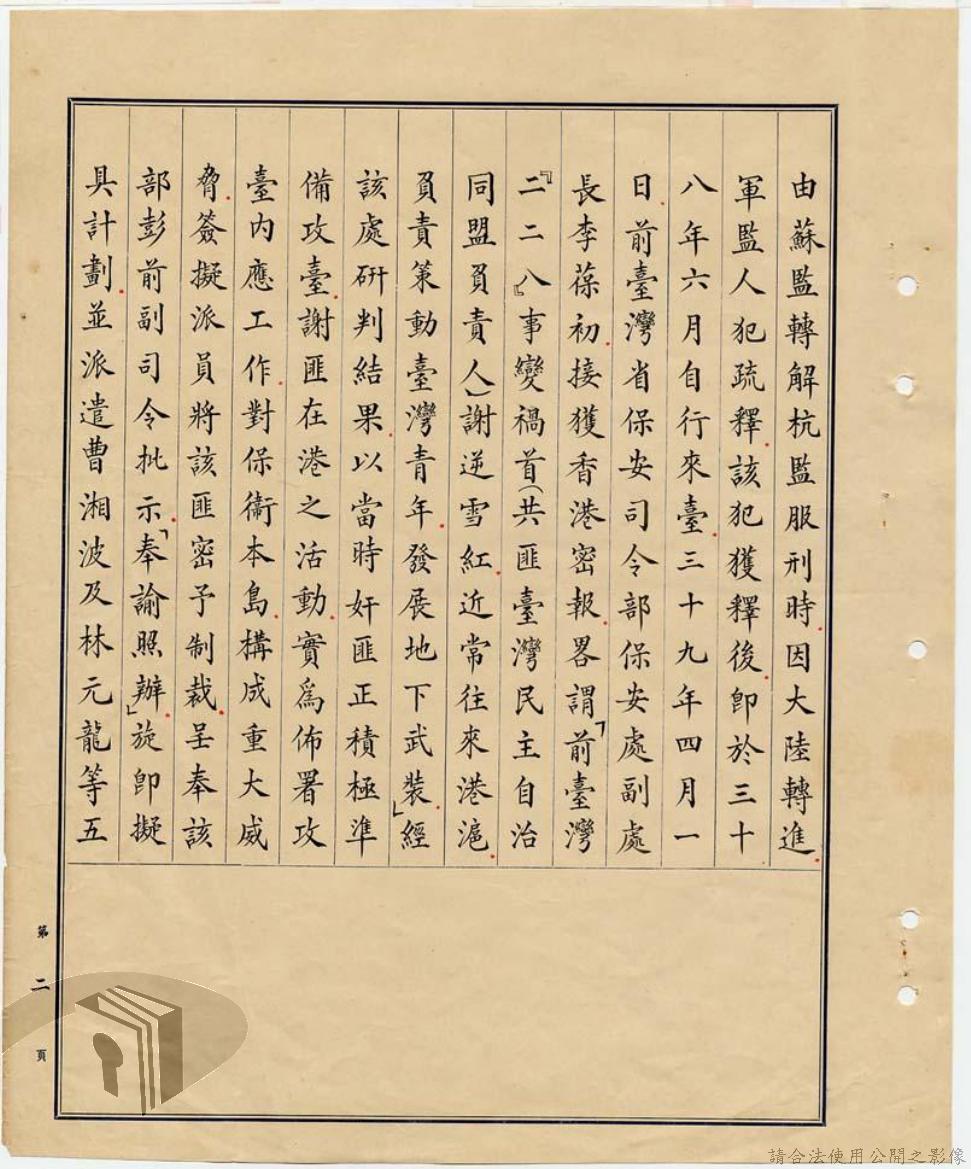 由蘇監轉解杭監服刑時.因大陸轉進.
軍監人犯疏釋.該犯獲釋後.卽於三十
八年六月自行來臺.三十九年四月一
日.前臺灣省保安司令部保安處副處
長李葆初.接獲香港密報.畧謂「前臺灣
『二二八』事變禍首(共匪臺灣民主自治
同盟負責人)謝逆雪紅.近常往來港滬.
負責策動臺灣青年.發展地下武裝.」經
該處研判結果.以當時奸匪正積極準
備攻臺.謝匪在港之活動.實爲佈署攻
臺內應工作.對保衞本島.構成重大威
脅.簽擬派員將該匪密予制裁.呈奉該
部彭前副司令批示.「奉諭照辦.」旋卽擬
具計劃.並派遣曹湘波及林元龍等五
第二頁
請合法使用公開之影像